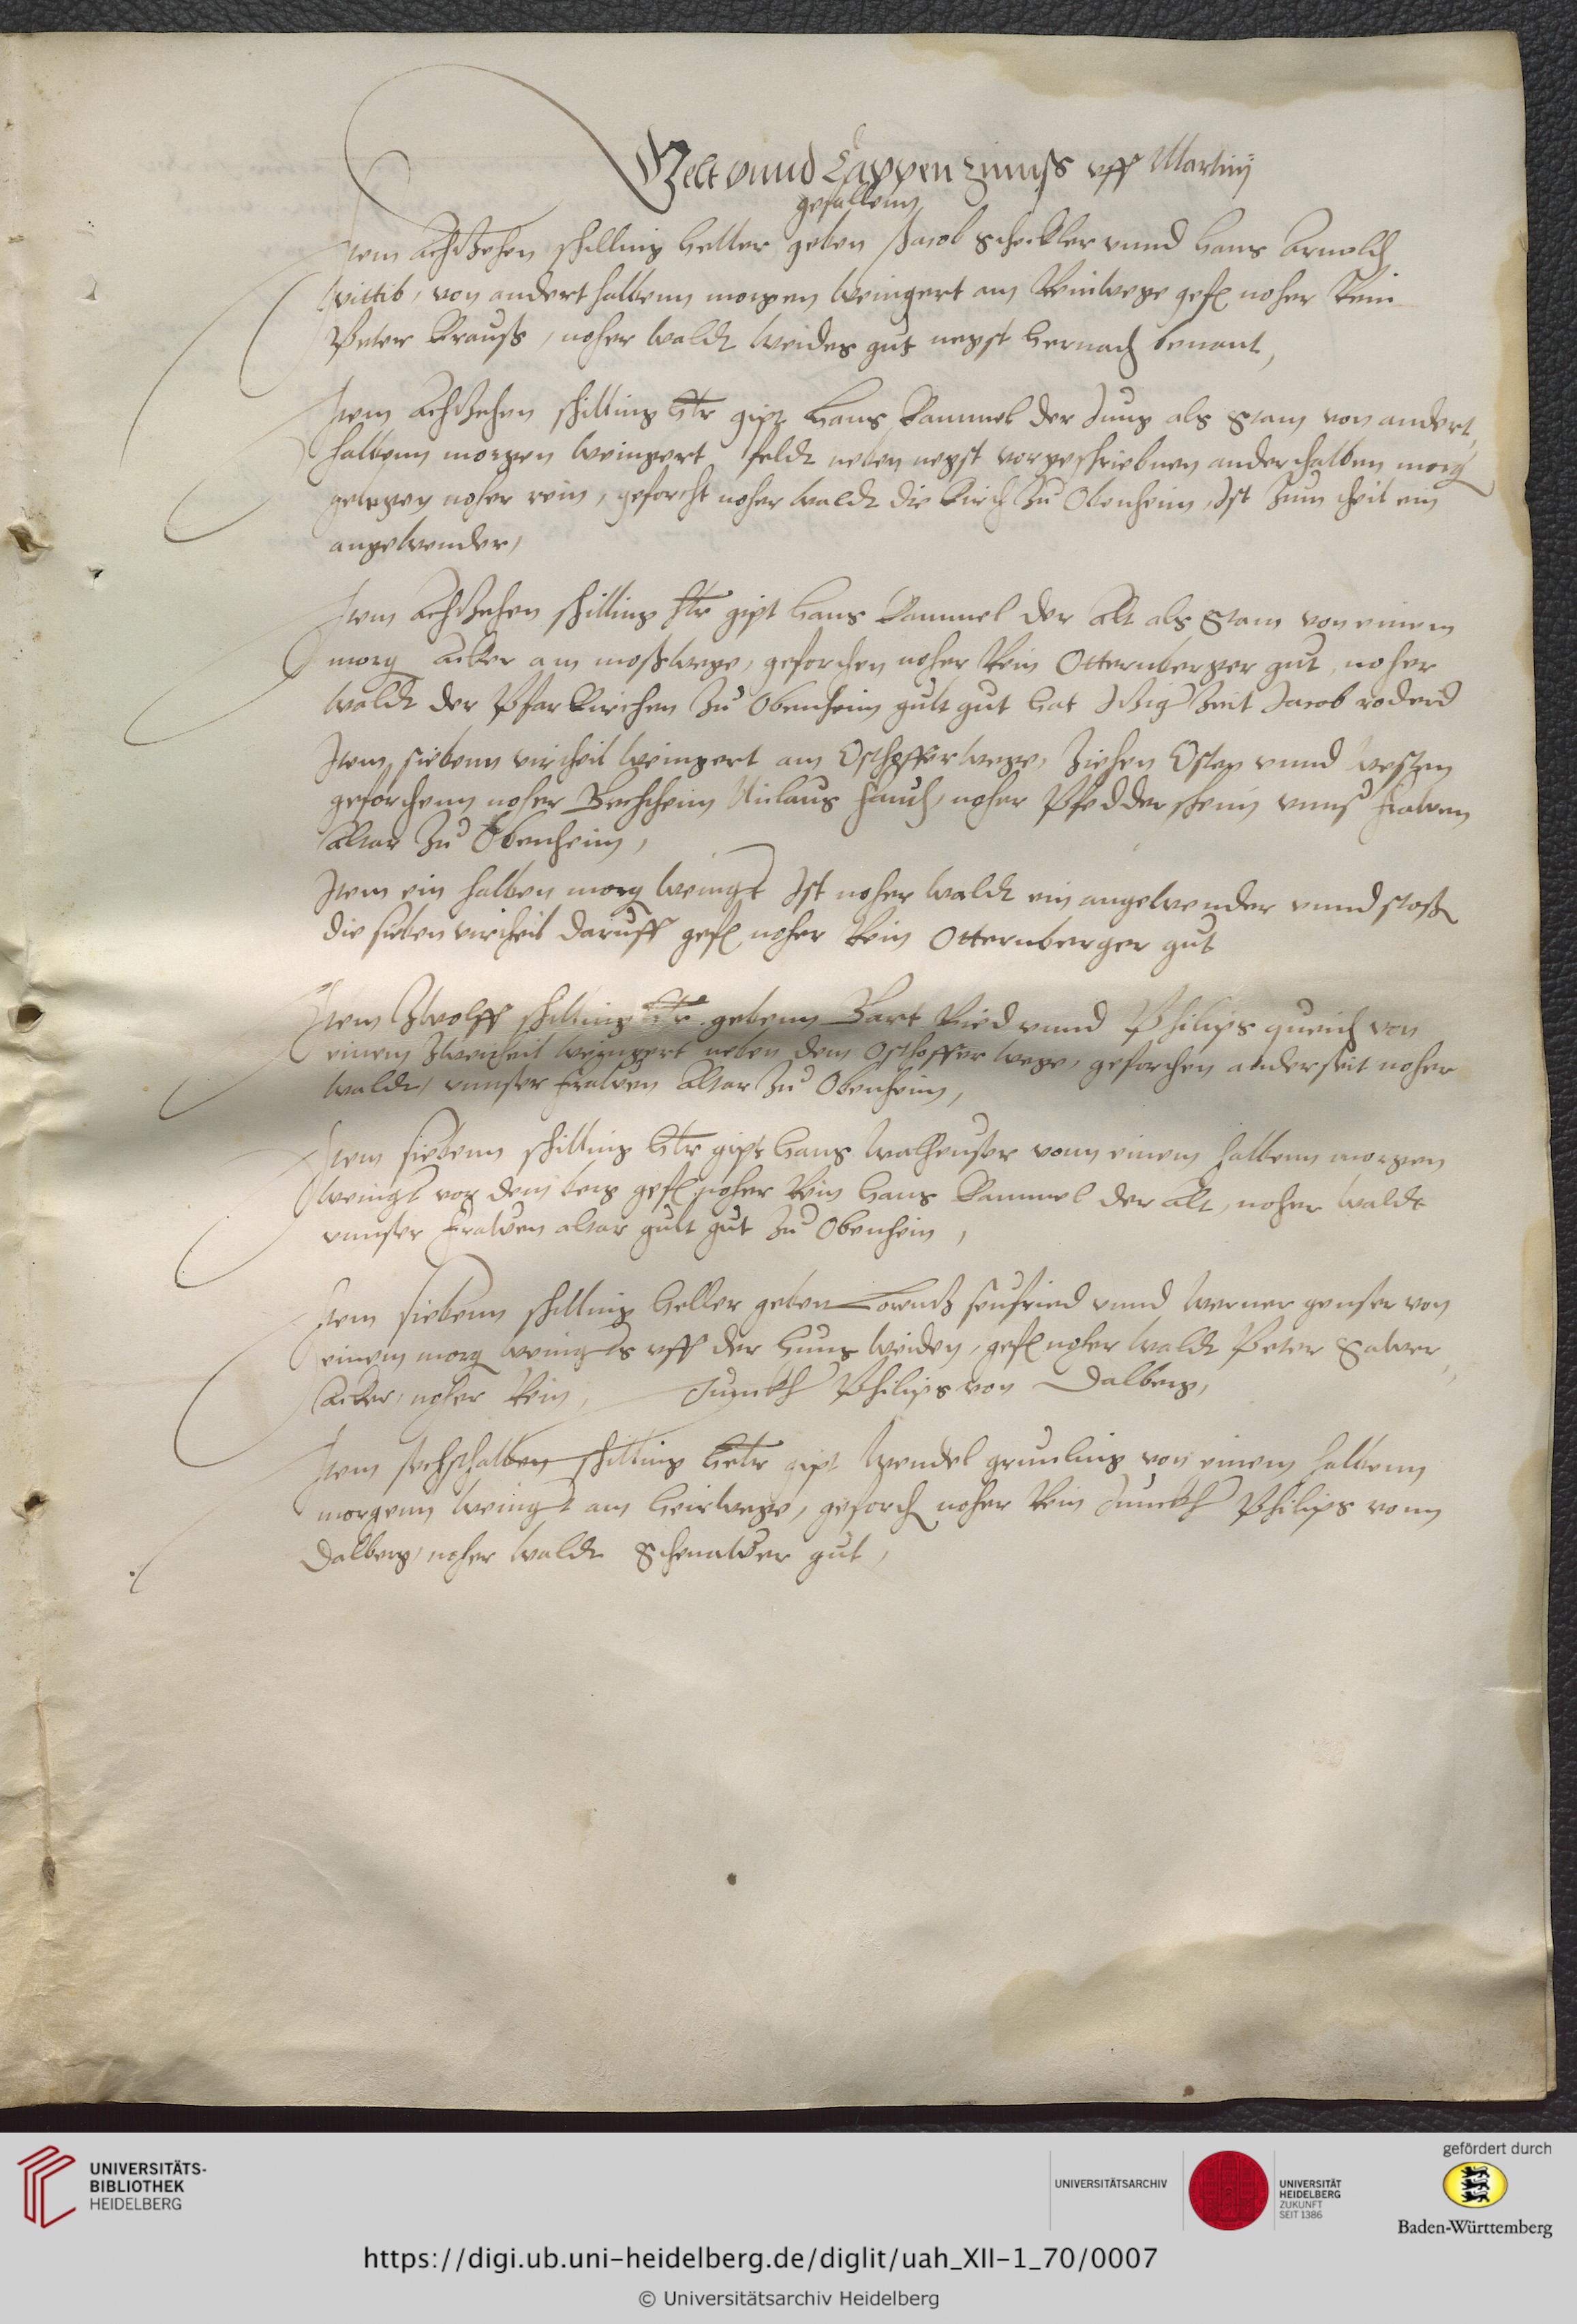 Gelt vnnd Cappen zinnß vff Martinj
gefallenn
Item achtzehen schilling heller geben Jacob scheckler vnnd hans Arnolds
wittib, von anderthalbenn morgen weingert am Reinwege gefo noher Rein
Peter Krauß, noher waldt weides gut negst hernach benant,
Item achtzehen schilling hlr gipt hans Kammel der Jung als stam von andert
halbenn morgen weingert feldt neben negst vorgeschriebnen anderthalben morg
gelegen noher rein, geforcht noher waldt die kirch zu Obenheim, Ist zum theil ein
angewender,
Item achtzehen schilling hlr gipt hans Kammel der Alt als stam von einem
morg acker am moßwege, geforchen noher Rein Otternberger gut, noher
waldt der Pfarkirchen zu Obenheim gult gut hat itzig Zeit Jacob
Item siebenn virtheil weingert am Osthoffer wege, ziehen Osten vnnd westen
geforchenn noher Bechtheim Niclaus Hauch, noher Pfeddersheim vnnß frawen
Altar zu Obenheim,
Item ein halben morg weingt Ist noher waldt ein angewender vnnd stoßen
die sieben virtheil daruff gefo noher Rein Otternberger gut
Item Zwolff schilling hlr gebenn Bart Ried vnnd Philips queich von
einem Zweitheil weingert neben dem Osthoffer wege, geforchen anderseit noher
waldt, vnnser frawen Altar zu Obenheim,
Item siebenn schilling hlr gipt hans walheuser vonn einem halbenn morgen
weingt vor dem berg gefo noher Rein hans Kammel der Alt, noher waldt
vnnser frawen altar gult gut zu Obenheim,
Item siebenn schilling heller geben Lorentz seufried vnnd werner genser von
einem morg weingts vff der hung weiden, gefo noher waldt Peter Sawer
acker, noher Rein, Junckh Philips von Dalberg,
Item sechsthalben schilling hlr gipt Wendel grunling von einem halbenn
morgenn weingt am heirwege, geforch noher Rein Junckh Philips vonn
Dalberg, noher waldt Schenawer gut,
UNIVERSITÄTS-
BIBLIOTHEK
HEIDELBERG
UNIVERSITÄTSARCHIV
UNIVERSITÄT
HEIDELBERG
ZUKUNFT
SEIT 1386
gefördert durch
Baden-Württemberg
https://digi.ub.uni-heidelberg.de/diglit/uah_XII-1_70/0007
© Universitätsarchiv Heidelberg